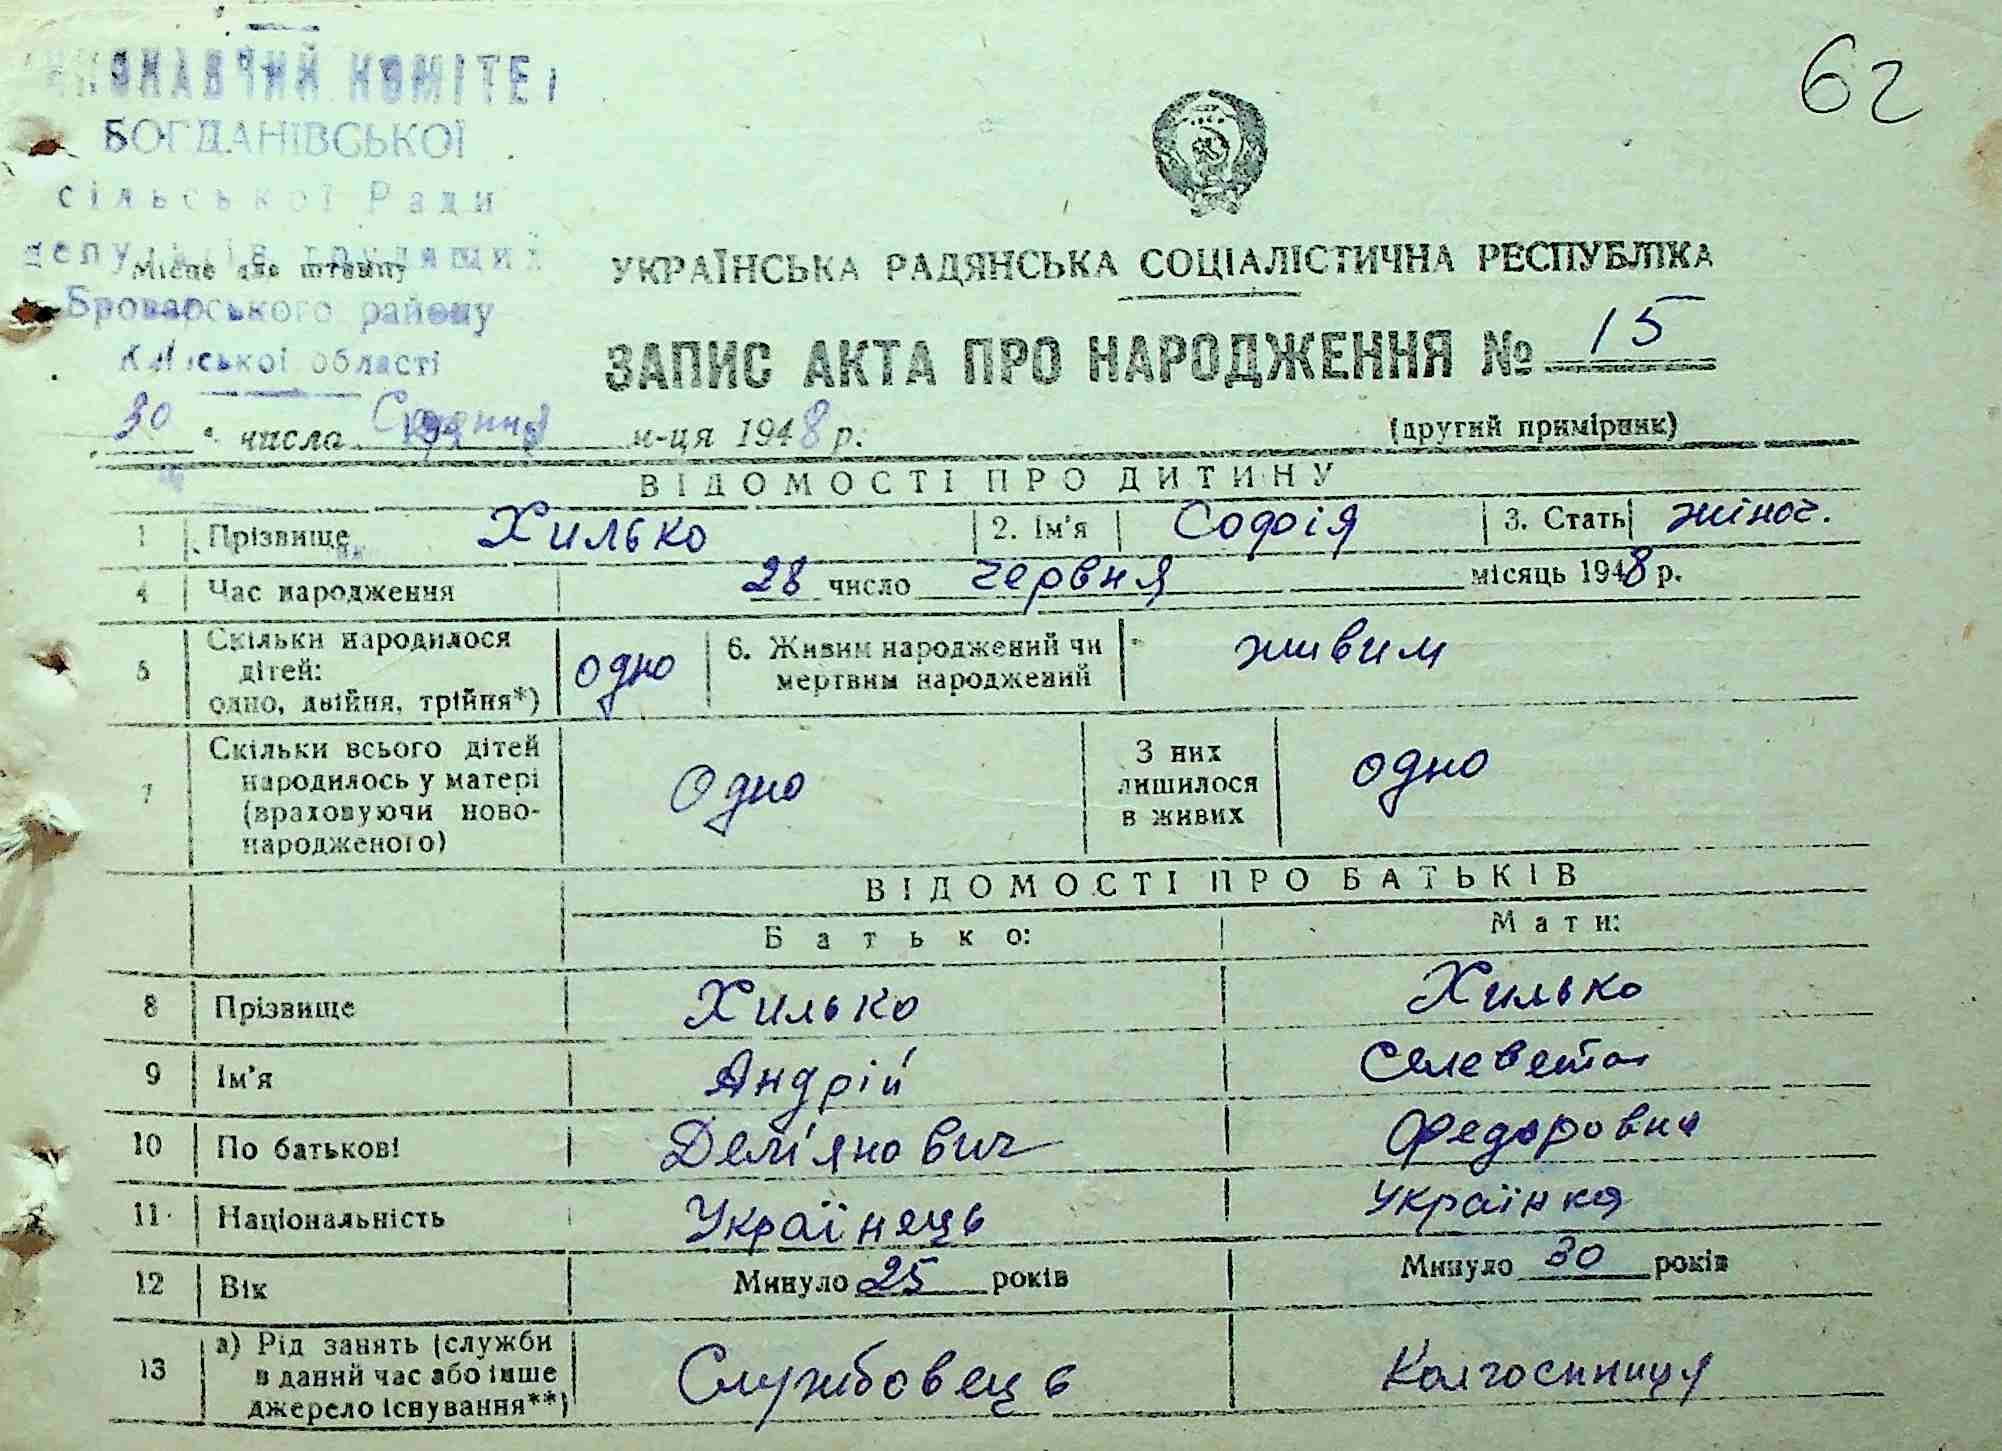 ВИКОНАВЧИЙ КОМІТЕТ
БОГДАНІВСЬКОЇ
сільської Ради
депутатів трудящих
Місце для штампу
Броварського району
Київської області
62
УКРАЇНСЬКА РАДЯНСЬКА СОЦІАЛІСТИЧНА РЕСПУБЛІКА
ЗАПИС АКТА ПРО НАРОДЖЕННЯ № 15
(другий примірник)
30 числа м-ця 1948 р.
ВІДОМОСТІ ПРО ДИТИНУ
1 Прізвище Хилько 2. Ім'я Софія 3. Стать жіноч.
4 Час народження 28 число червня місяць 1948 р.
5 Скільки народилося дітей: одно, двійня, трійня*) одно 6. Живим народжений чи мертвим народжений живим
7 Скільки всього дітей народилось у матері (враховуючи ново-народженого) Одно З них лишилося в живих одно
ВІДОМОСТІ ПРО БАТЬКІВ
Батько: Мати:
8 Прізвище Хилько Хилько
9 Ім'я Андрій Селевета
10 По батькові Дем'янович Федоровна
11 Національність Українець Українка
12 Вік Минуло 25 років Минуло 30 років
13 а) Рід занять (служби в даний час або інше джерело існування**) Службовець Колгоспниця